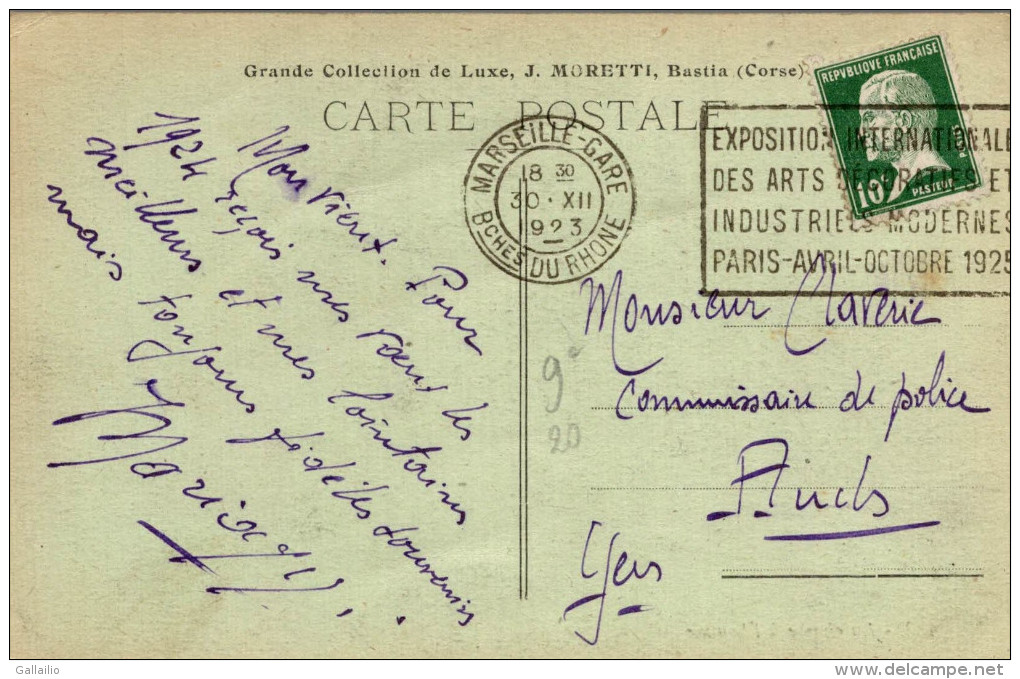 Grande Collection de Luxe, J. MORETTI, Bastia (Corse)
CARTE POSTALE
REPVBLIQUE FRANÇAISE
10
PASTEUR
MARSEILLE-GARE
18 30
30 · XII
1923
BCHES DU RHONE
EXPOSITION INTERNATIONALE
DES ARTS DÉCORATIFS ET
INDUSTRIELS MODERNES
PARIS-AVRIL-OCTOBRE 1925
Mon vieux. Pour
1924 reçois mes vœux les
meilleurs et mes lointains
mais toujours fidèles souvenirs
Monsieur Claverie
Commissaire de police
Auch
Gers
9
20
Gallailio
www.delcampe.net